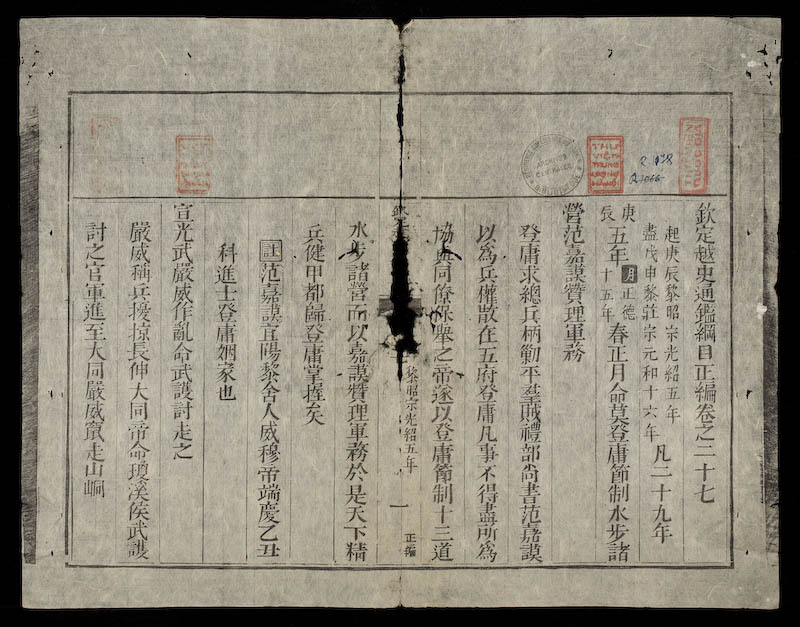 欽定越史通鑑綱目正編卷之二十七
起庚辰黎昭宗光紹五年
盡戊申黎莊宗元和十六年
凡二十九年
庚辰
五年
明正德十五年
春正月命莫登庸節制水步諸
營范嘉謨贊理軍務
登庸求總兵柄勦平羣賊禮部尚書范嘉謨
以為兵權散在五府登庸凡事不得盡所為
協與同僚保舉之帝遂以登庸節制十三道
黎昭宗光紹五年
一
正編
水步諸營而以嘉謨贊理軍務於是天下精
兵健甲都歸登庸掌握矣
註范嘉謨宜陽黎舍人威穆帝端慶乙丑
科進士登庸姻家也
宣光武嚴威作亂命武護討走之
嚴威稱兵擾掠長伸大同帝命瓊溪侯武護
討之官軍進至大同嚴威竄走山峒
THƯ VIỆN TRUNG ƯƠNG
R.1438
R.1066